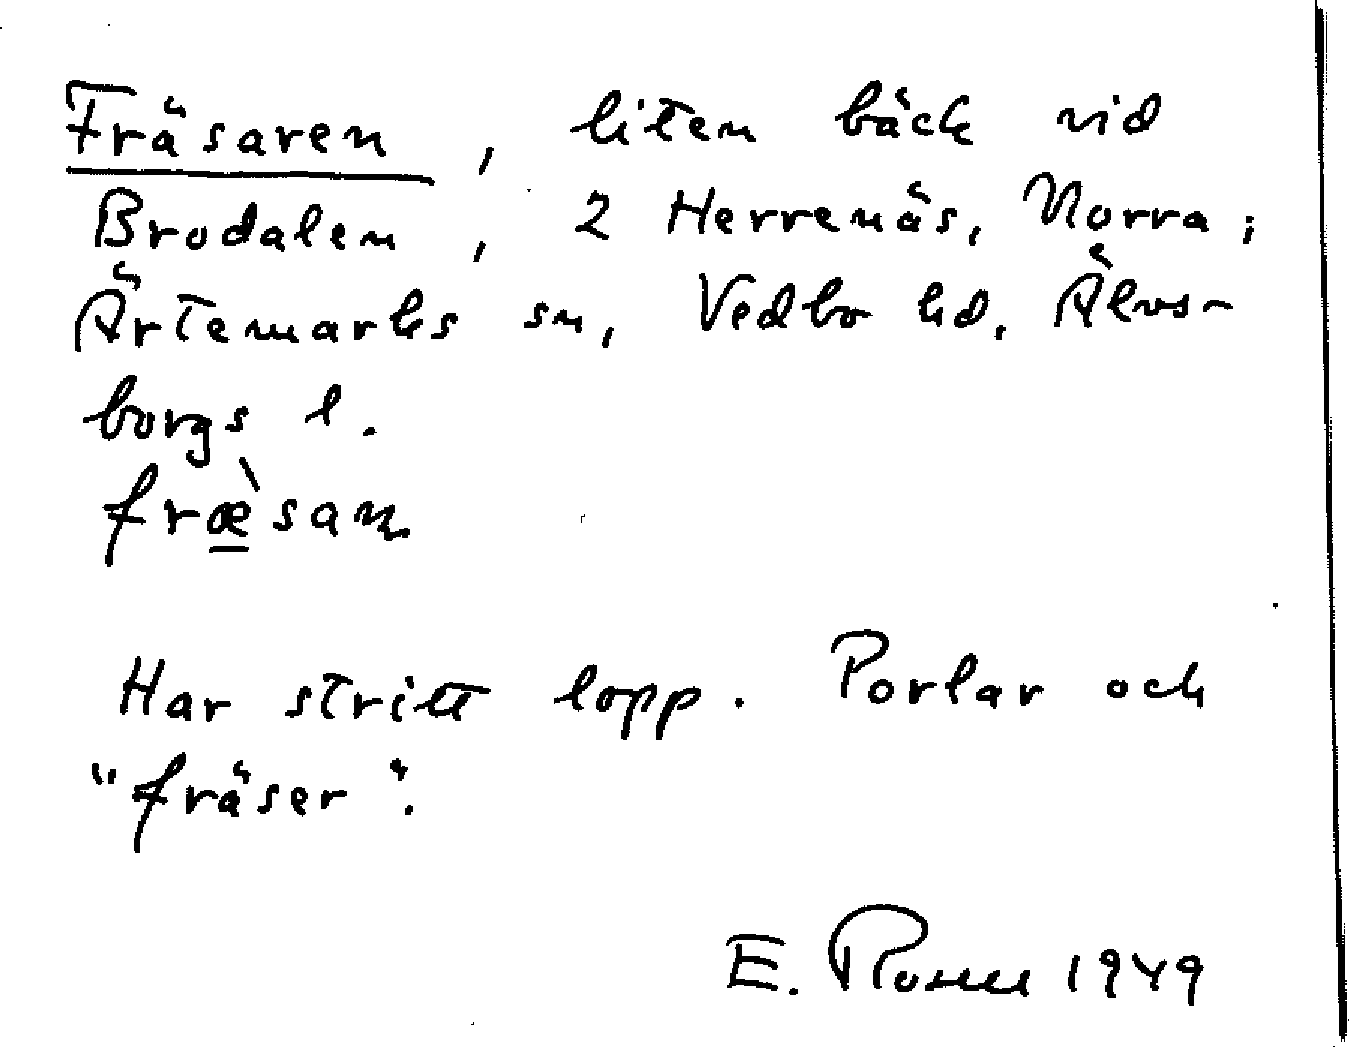 Fräsaren, liten bäck vid
Brodalen, 2 Herrenäs, Norra;
Ärtemarks sn, Vedbo hd. Älvs-
borgs l.
fræ̀san
Har stritt lopp. Porlar och
"fräser".
E. 1949